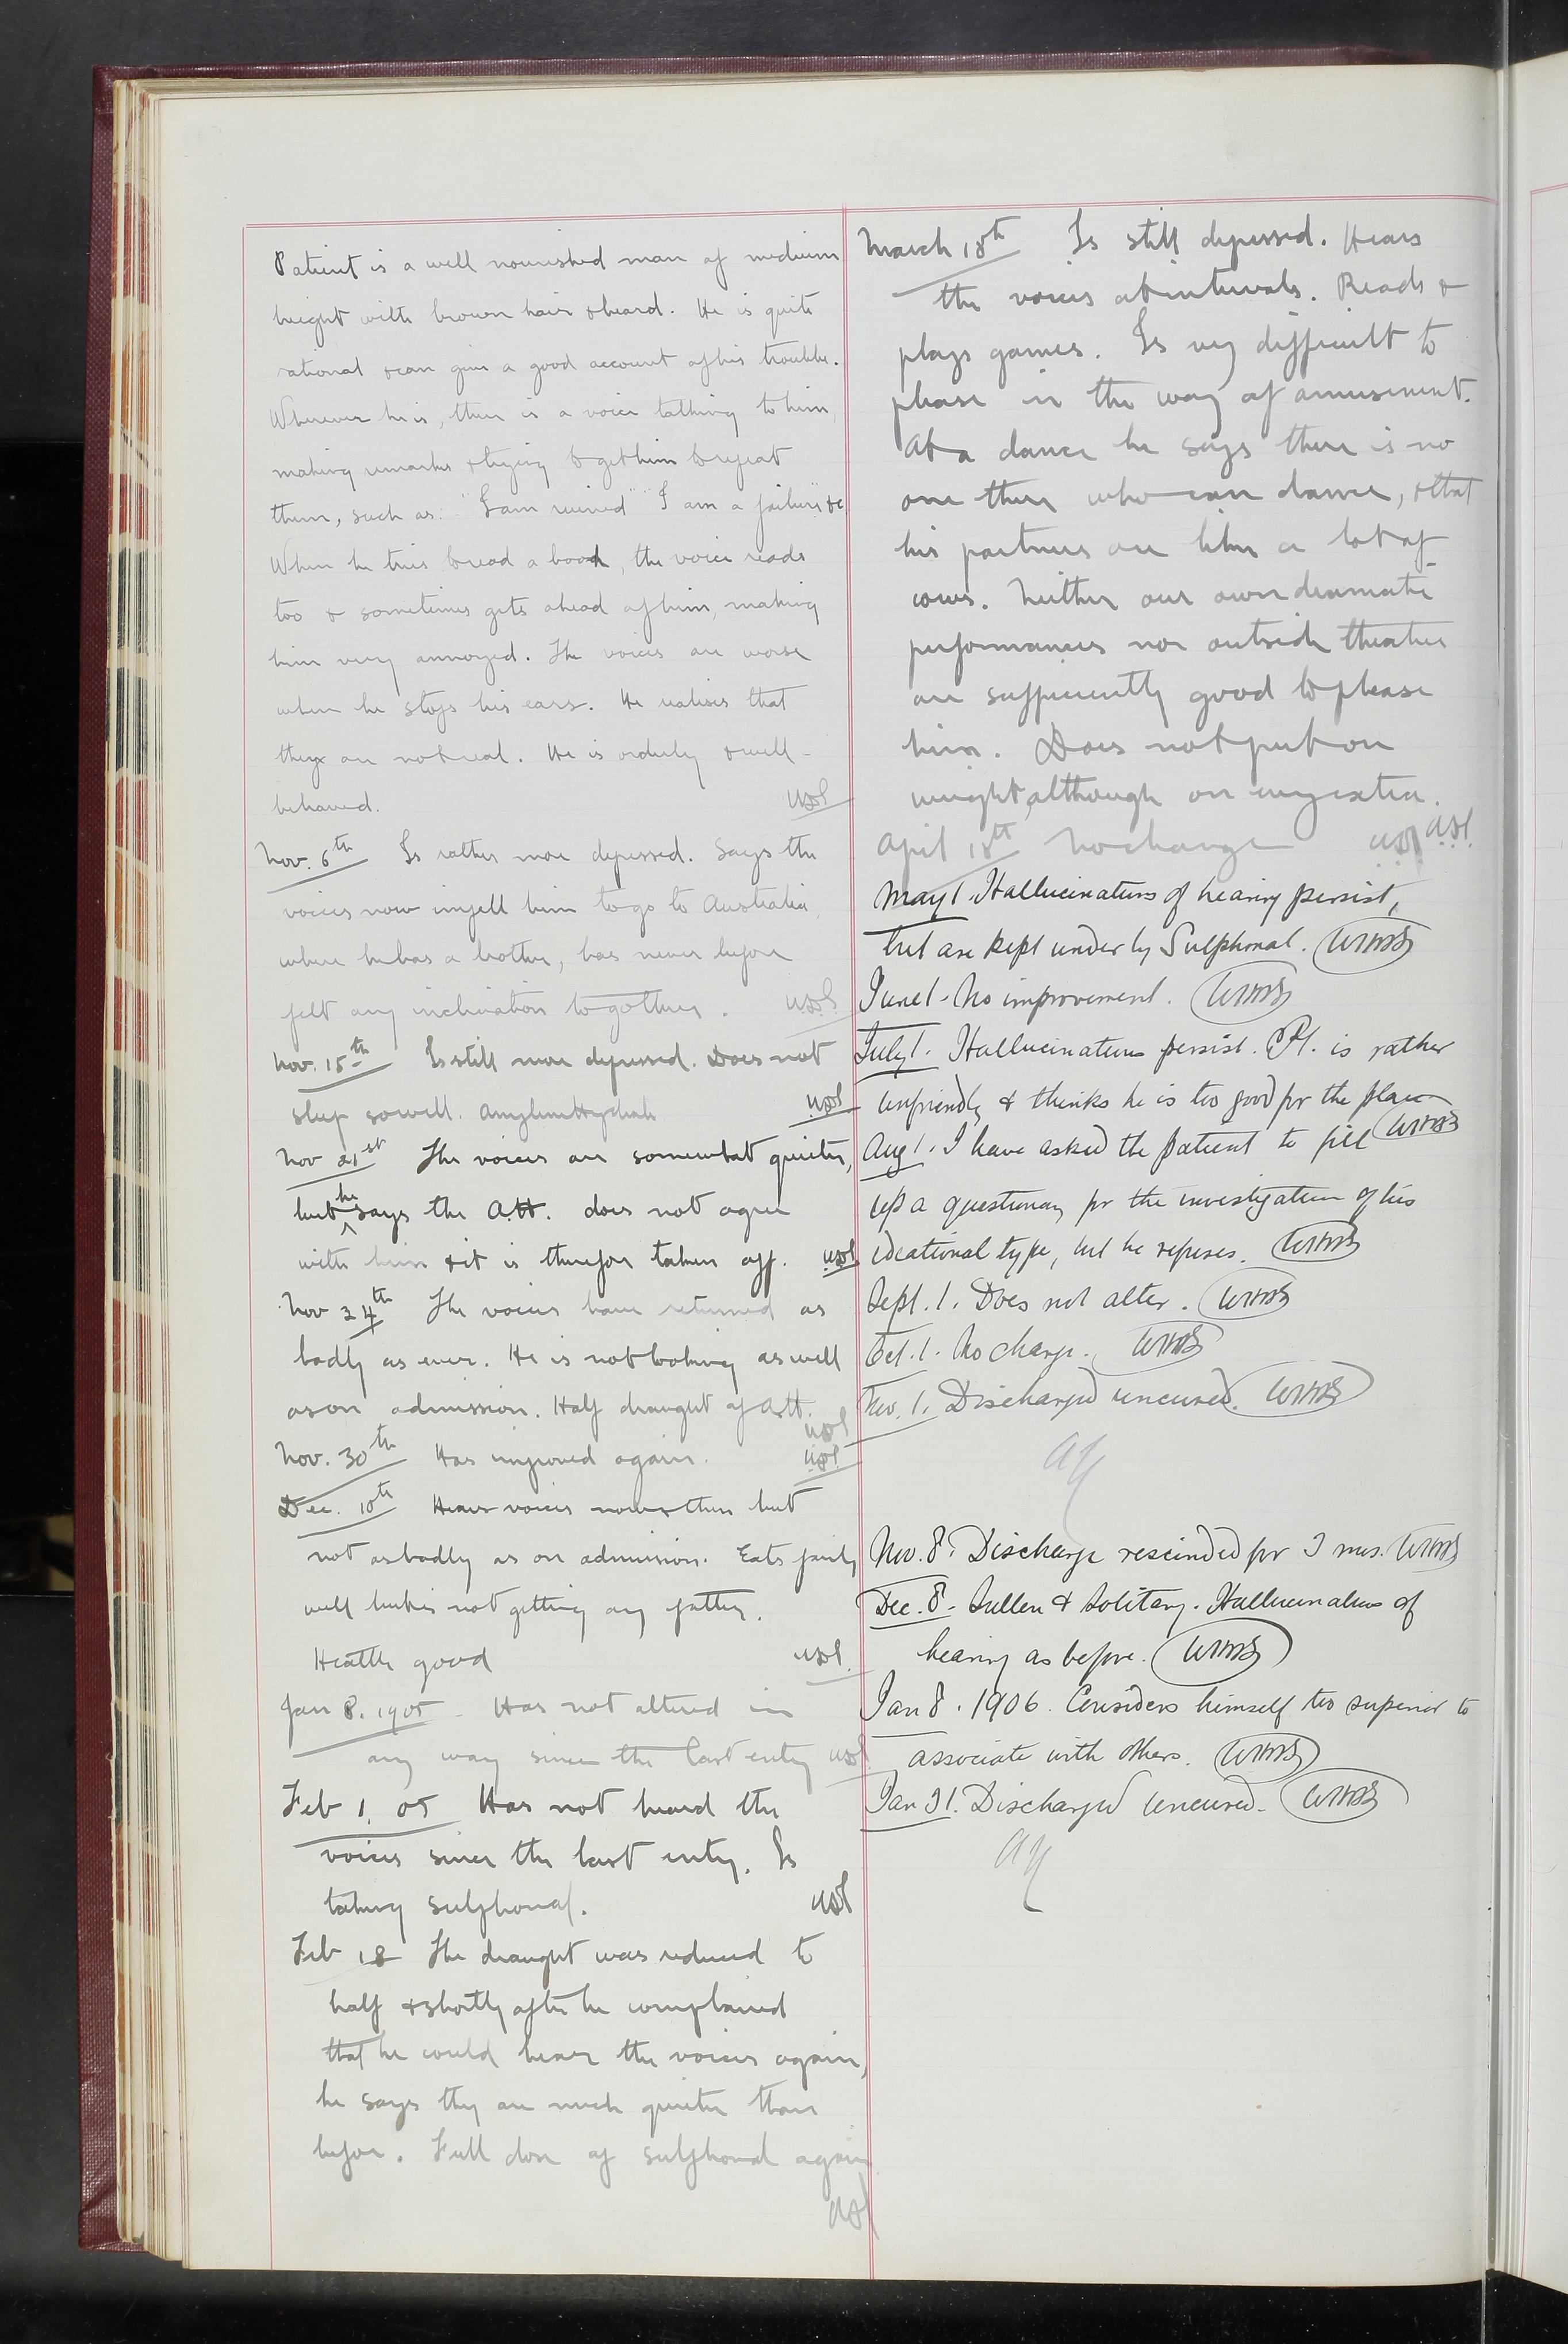 Patient is a well nourished man of medium
height with brown hair & beard. He is quite
rational & can give a good account of his trouble.
Wherever he is, there is a voice talking to him,
making remarks & trying to get him to repeat
them, such as: "I am ruined" "I am a failure" &c
When he tries to read a book, the voice reads
too & sometimes gets ahead of him, making
him very annoyed. The voices are worse
when he stops his ears. He realises that
they are not real. He is orderly & well-
behaved.
Nov. 6th Is rather more depressed. Says the
voices now impell him to go to Australia,
where he has a brother, has never before
felt any inclination to go there.
Nov. 15th Is still more depressed. Does not
sleep so well. Amylene Hydrate
Nov 21st The voices are somewhat quieter,
but he says the A.H. does not agree
with him & it is therefore taken off.
Nov 24th The voices have returned as
badly as ever. He is not looking as well
as on admission. Half draught of A.H.
Nov. 30th Has improved again.
Dec. 10th Hears voices now & then but
not as badly as on admission. Eats fairly
well but is not getting any fatter.
Health good
Jan 8. 1905 Has not altered in
any way since the last entry
Feb 1. 05 Has not heard the
voices since the last entry. Is
taking sulphonal.
Feb 18 The draught was reduced to
half & shortly after he complained
that he could hear the voices again,
he says they are much quieter than
before. Full dose of sulphonal again
March 18th Is still depressed. Hears
the voices at intervals. Reads &
plays games. Is very difficult to
please in the way of amusement.
At a dance he says there is no
one there who can dance, & that
his partners are like a lot of
cows. Neither our own dramatic
performances nor outside theatres
are sufficiently good to please
him. Does not put on
weight, although on every extra.
April 18th No change
May 1. Hallucinations of hearing persist,
but are kept under by Sulphonal.
June 1. No improvement.
July 1. Hallucinations persist. Pt. is rather
unfriendly & thinks he is too good for the place
Aug 1. I have asked the patient to fill
up a questionary for the investigation of his
ideational type, but he refuses.
Sept. 1. Does not alter.
Oct. 1. No change.
Nov. 1. Discharged uncured.
Nov. 8. Discharge rescinded for 3 mos.
Dec. 8. Sullen & Solitary. Hallucinations of
hearing as before.
Jan 8. 1906. Considers himself too superior to
associate with others.
Jan 31. Discharged uncured.